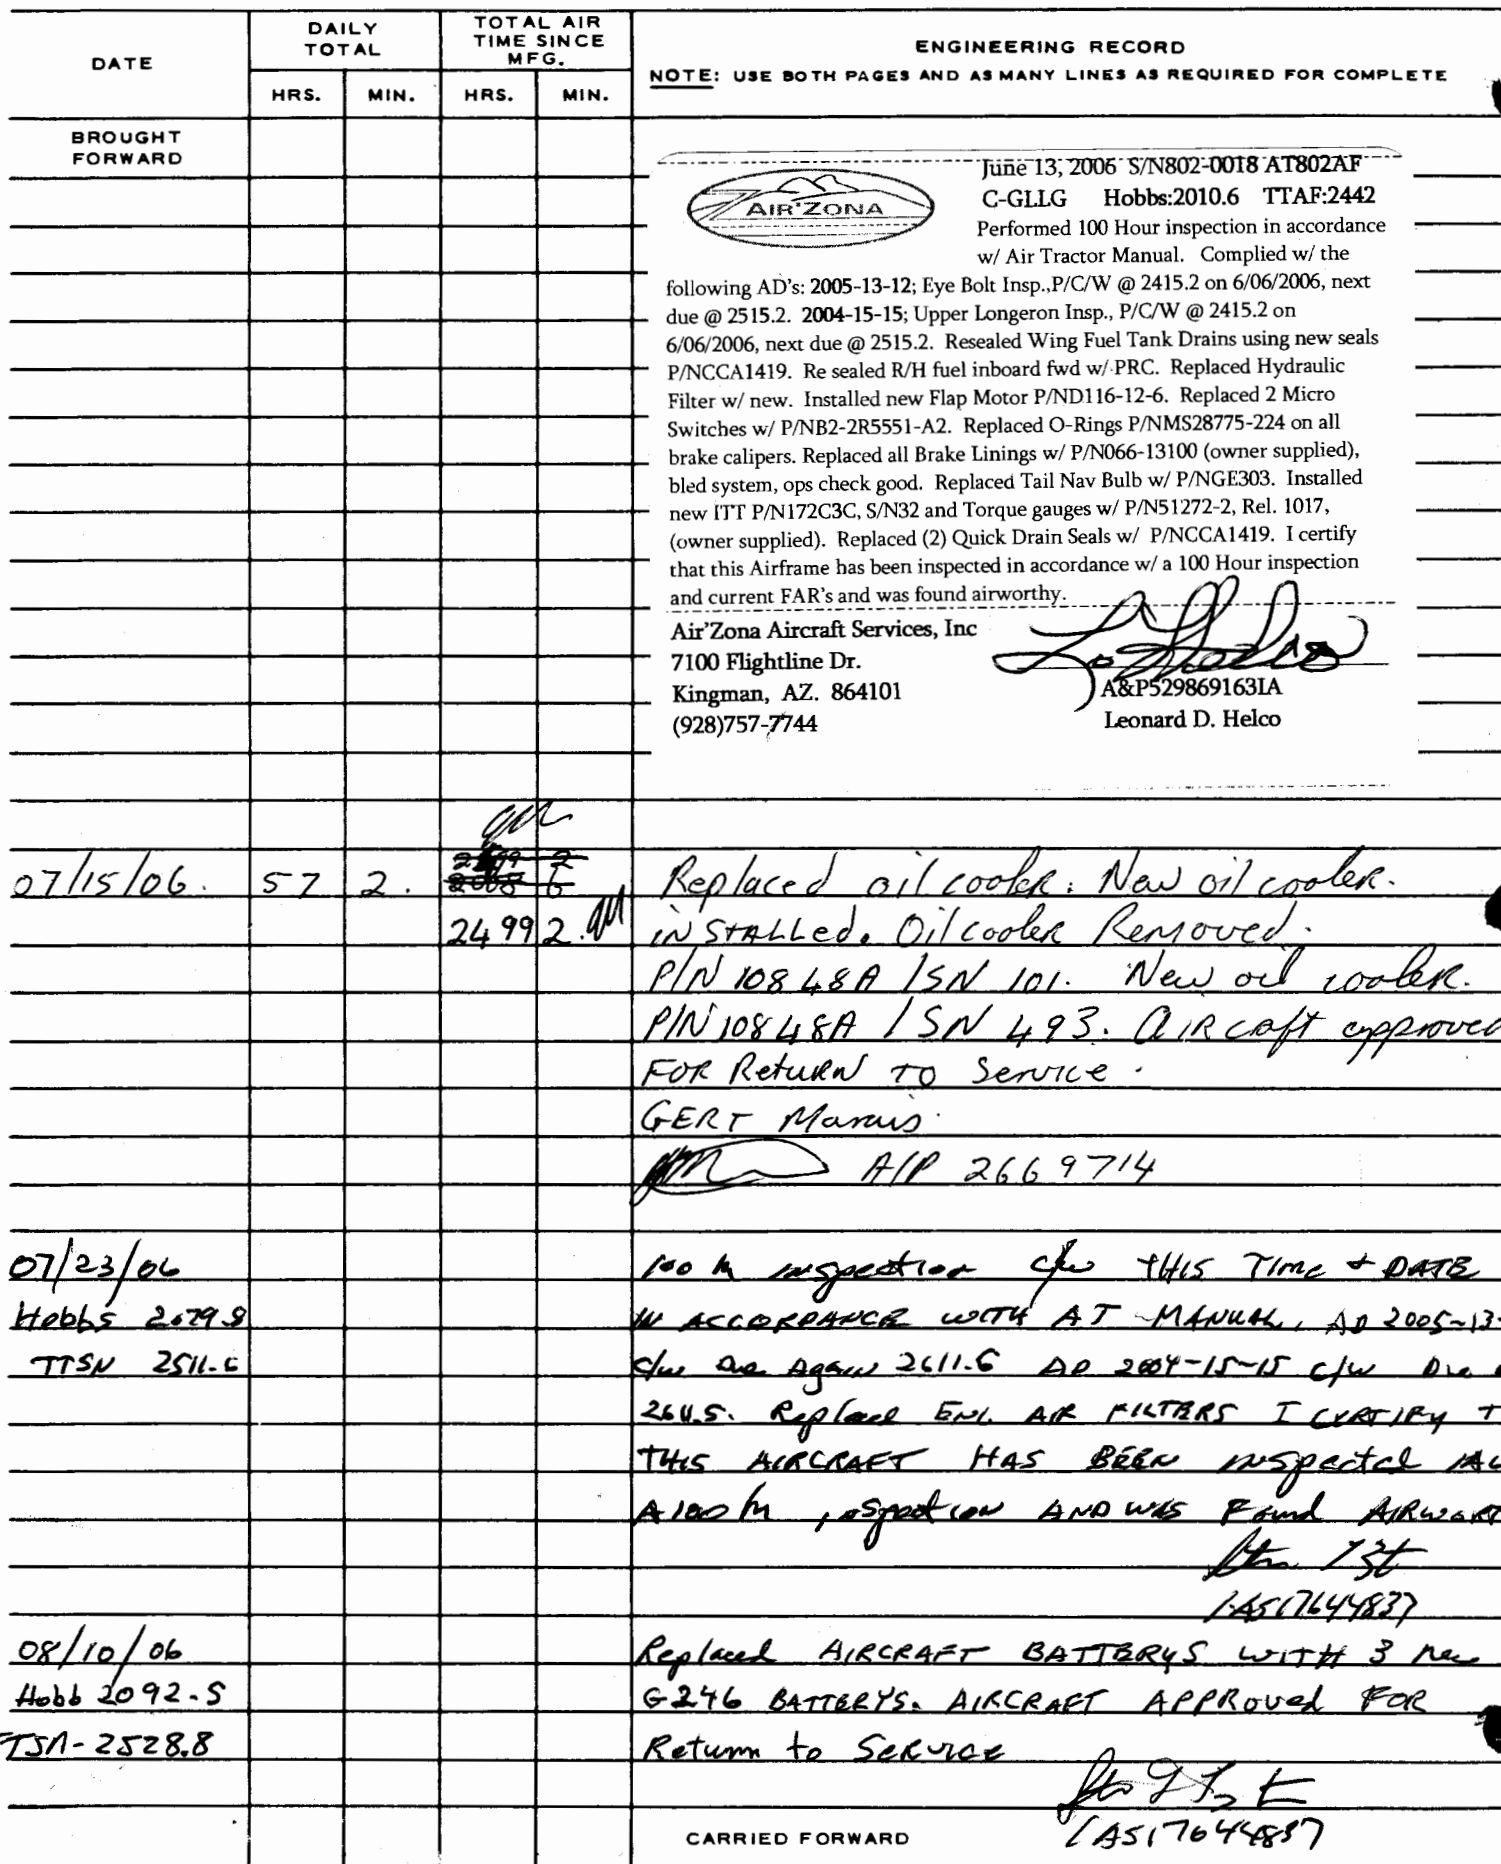 DATE
DAILY TOTAL
TOTAL AIR TIME SINCE MFG.
ENGINEERING RECORD
NOTE: USE BOTH PAGES AND AS MANY LINES AS REQUIRED FOR COMPLETE
HRS. MIN. HRS. MIN.
BROUGHT FORWARD
AIR'ZONA
June 13, 2006 S/N802-0018 AT802AF
C-GLLG Hobbs:2010.6 TTAF:2442
Performed 100 Hour inspection in accordance
w/ Air Tractor Manual. Complied w/ the
following AD's: 2005-13-12; Eye Bolt Insp.,P/C/W @ 2415.2 on 6/06/2006, next
due @ 2515.2. 2004-15-15; Upper Longeron Insp., P/C/W @ 2415.2 on
6/06/2006, next due @ 2515.2. Resealed Wing Fuel Tank Drains using new seals
P/NCCA1419. Re sealed R/H fuel inboard fwd w/ PRC. Replaced Hydraulic
Filter w/ new. Installed new Flap Motor P/ND116-12-6. Replaced 2 Micro
Switches w/ P/NB2-2R5551-A2. Replaced O-Rings P/NMS28775-224 on all
brake calipers. Replaced all Brake Linings w/ P/N066-13100 (owner supplied),
bled system, ops check good. Replaced Tail Nav Bulb w/ P/NGE303. Installed
new ITT P/N172C3C, S/N32 and Torque gauges w/ P/N51272-2, Rel. 1017,
(owner supplied). Replaced (2) Quick Drain Seals w/ P/NCCA1419. I certify
that this Airframe has been inspected in accordance w/ a 100 Hour inspection
and current FAR's and was found airworthy.
Air'Zona Aircraft Services, Inc
7100 Flightline Dr.
Kingman, AZ. 864101
(928)757-7744
A&P529869163IA
Leonard D. Helco
07/15/06. 57 2. Replaced oil cooler. New oil cooler.
2499 2. INSTALLed. Oil cooler Removed.
P/N 10848A / SN 101. New oil cooler.
P/N 10848A / SN 493. AIRcaft approved
FOR Return TO Service.
GERT Marais
A/P 2669714
07/23/06 100 hr inspection c/w THIS TIme + DATE
Hobbs 2079.8 IN ACCORDANCE WITH AT MANUAL, AD 2005-13-
TTSN 2511.6 c/w Due Again 2611.6 AD 2004-15-15 c/w Due
2611.5. Replaced ENG. AIR FILTERS I CERTIFY
THIS AIRCRAFT HAS BEEN inspected
A 100 hr inspection AND WAS Found AIRWORT
IA517644837
08/10/06 Replaced AIRCRAFT BATTERYS WITH 3 new
Hobb 2092.5 G246 BATTERYS. AIRCRAFT APPROVed FOR
TTSN-2528.8 Return to SERVICE
IA517644837
CARRIED FORWARD